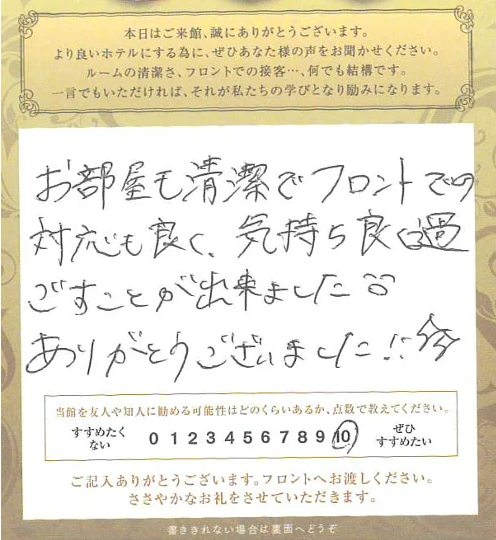 本日はご来館、誠にありがとうございます。
より良いホテルにする為に、ぜひあなた様の声をお聞かせください。
ルームの清潔さ、フロントでの接客…、何でも結構です。
一言でもいただければ、それが私たちの学びとなり励みになります。
お部屋も清潔でフロントでの
対応も良く、気持ち良く過
ごすことが出来ました
ありがとうございました!!
当館を友人や知人に勧める可能性はどのくらいあるか、点数で教えてください。
すすめたくない 0 1 2 3 4 5 6 7 8 9 10 ぜひすすめたい
ご記入ありがとうございます。フロントへお渡しください。
ささやかなお礼をさせていただきます。
書ききれない場合は裏面へどうぞ